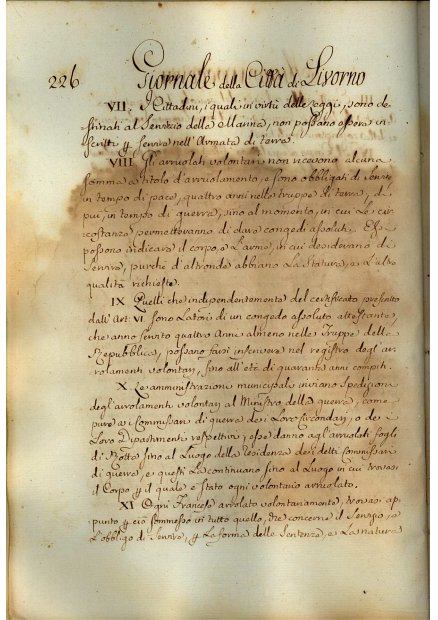 226 Giornale della Città di Livorno
VII. I Cittadini, i quali in virtù delle Leggi, sono de
stinati al Servizio della Marina, non possano essere in
scritti p servire nell'Armata di terra.
VIII Gli arruolati volontari non ricevono alcuna
somma a titolo d'arruolamento, e sono obbligati di servire
in tempo di pace, quattro anni nelle truppe di terra, e di
più, in tempo di guerra, sino al momento, in cui le cir
costanze permetteranno di dare congedi assoluti. Essi
possono indicare il corpo, e l'arme, in cui desiderano di
servire, purchè d'altronde abbiano la statura, e l'altre
qualità richieste.
IX Quelli che indipendentemente dal certificato prescritto
dall'Art: VI. sono Latori di un congedo assoluto attestante,
che anno servito quattro Anni almeno nelle Truppe della
Repubblica, possano farsi inscrivere nel registro degl'ar
rolamenti volontarj, sino all'età di quarant'anni compiti.
X. Le amministrazioni municipali inviano spedizione
degl'arrolamenti volontarj al Ministro della guerra, come
pure ai Commissari di guerra dei Loro Circondarj, o dei
Loro Dipartimenti respettivi; esse danno agl'arruolati fogli
di Rotta sino al Luogo della residenza dei detti Commissari
di guerra, e questi La continuano sino al Luogo in cui trovasi
il Corpo p il quale è stato ogni volontario arruolato.
XI Ogni Francese arrolato volontariamente, trovasi ap
punto p ciò sommesso in tutto quello, che concerne il Servizio, e
l'obbligo di Servire, p la forma delle Sentenze, e la natura